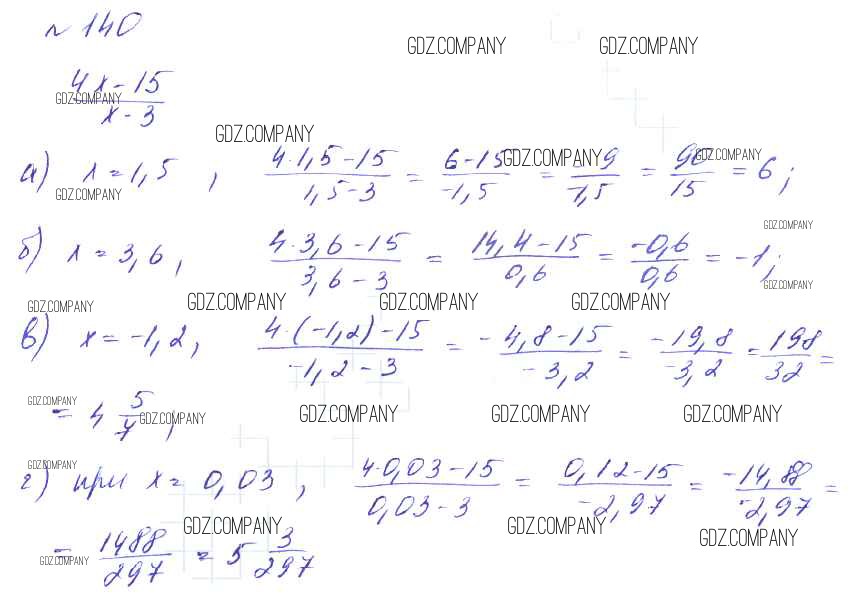 № 140
GDZ.COMPANY GDZ.COMPANY
4x - 15 / x - 3
GDZ.COMPANY
GDZ.COMPANY
а) x = 1,5 , 4·1,5 - 15 / 1,5 - 3 = 6 - 15 / -1,5 = -9 / -1,5 = 90 / 15 = 6 ;
GDZ.COMPANY GDZ.COMPANY
GDZ.COMPANY
GDZ.COMPANY
б) x = 3,6 , 4·3,6 - 15 / 3,6 - 3 = 14,4 - 15 / 0,6 = -0,6 / 0,6 = -1;
GDZ.COMPANY
GDZ.COMPANY GDZ.COMPANY GDZ.COMPANY GDZ.COMPANY
в) x = -1,2 , 4·(-1,2) - 15 / -1,2 - 3 = -4,8 - 15 / -3,2 = -19,8 / -3,2 = 198 / 32 =
GDZ.COMPANY
= 4 5/7 ,
GDZ.COMPANY GDZ.COMPANY GDZ.COMPANY GDZ.COMPANY
GDZ.COMPANY
г) при x = 0,03 , 4·0,03 - 15 / 0,03 - 3 = 0,12 - 15 / -2,97 = -14,88 / -2,97 =
GDZ.COMPANY GDZ.COMPANY GDZ.COMPANY
= 1488 / 297 = 5 3/297
GDZ.COMPANY